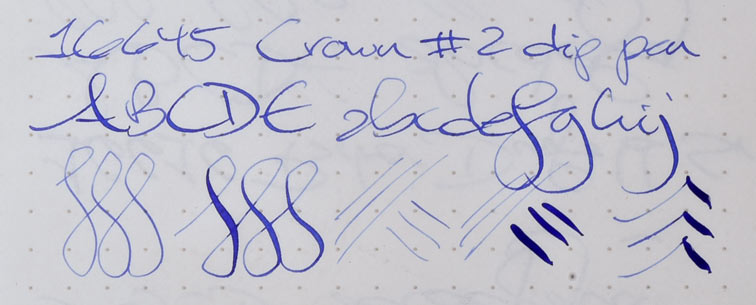 16645 Crown #2 dip pen
ABCDE abcdefghij